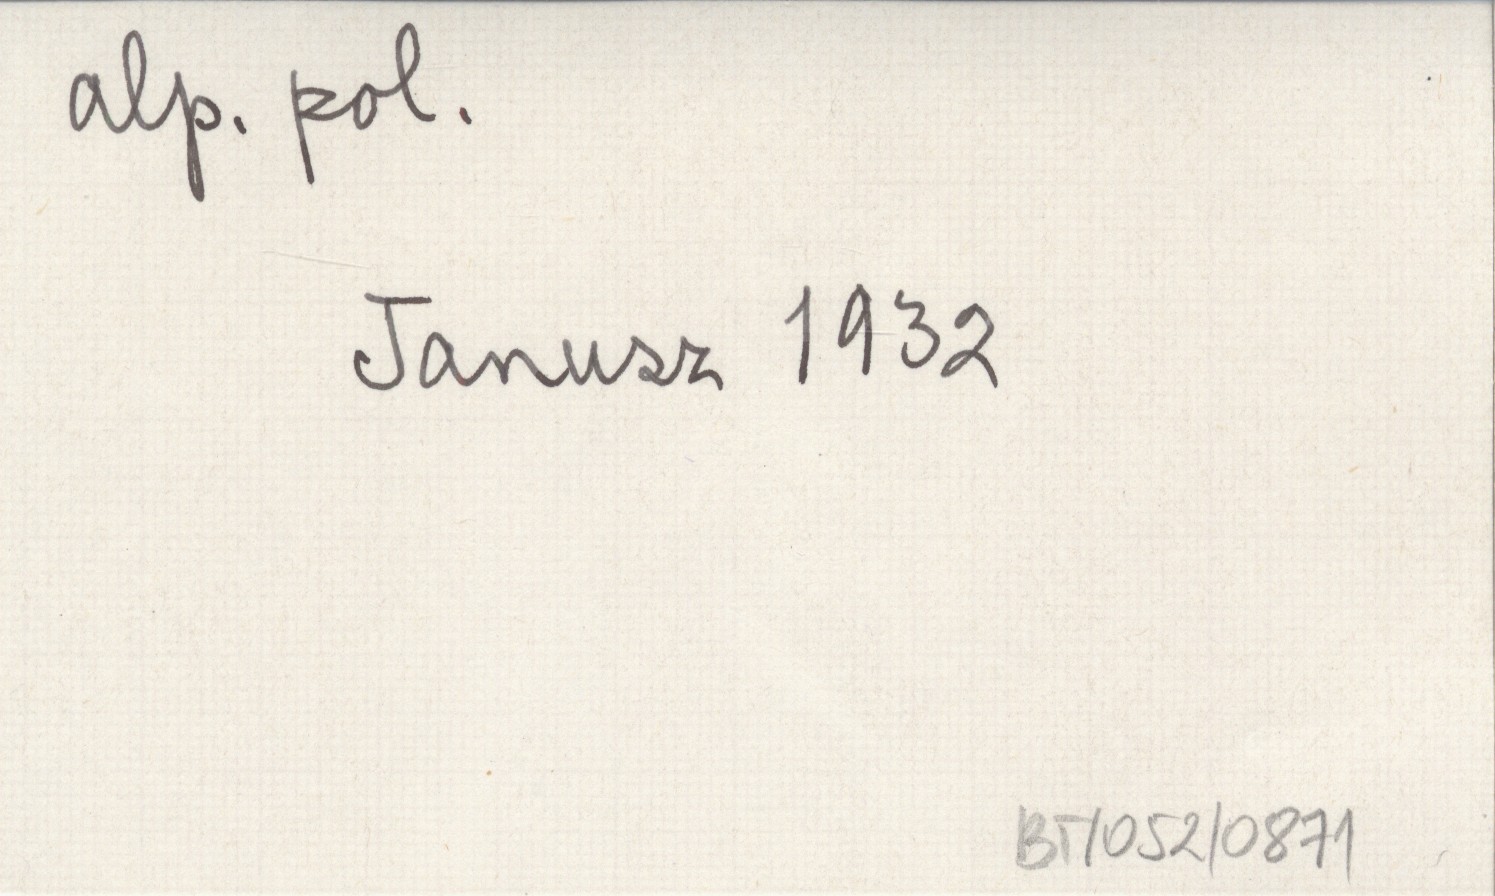 alp. pol.
Janusz 1932
BT/052/0871